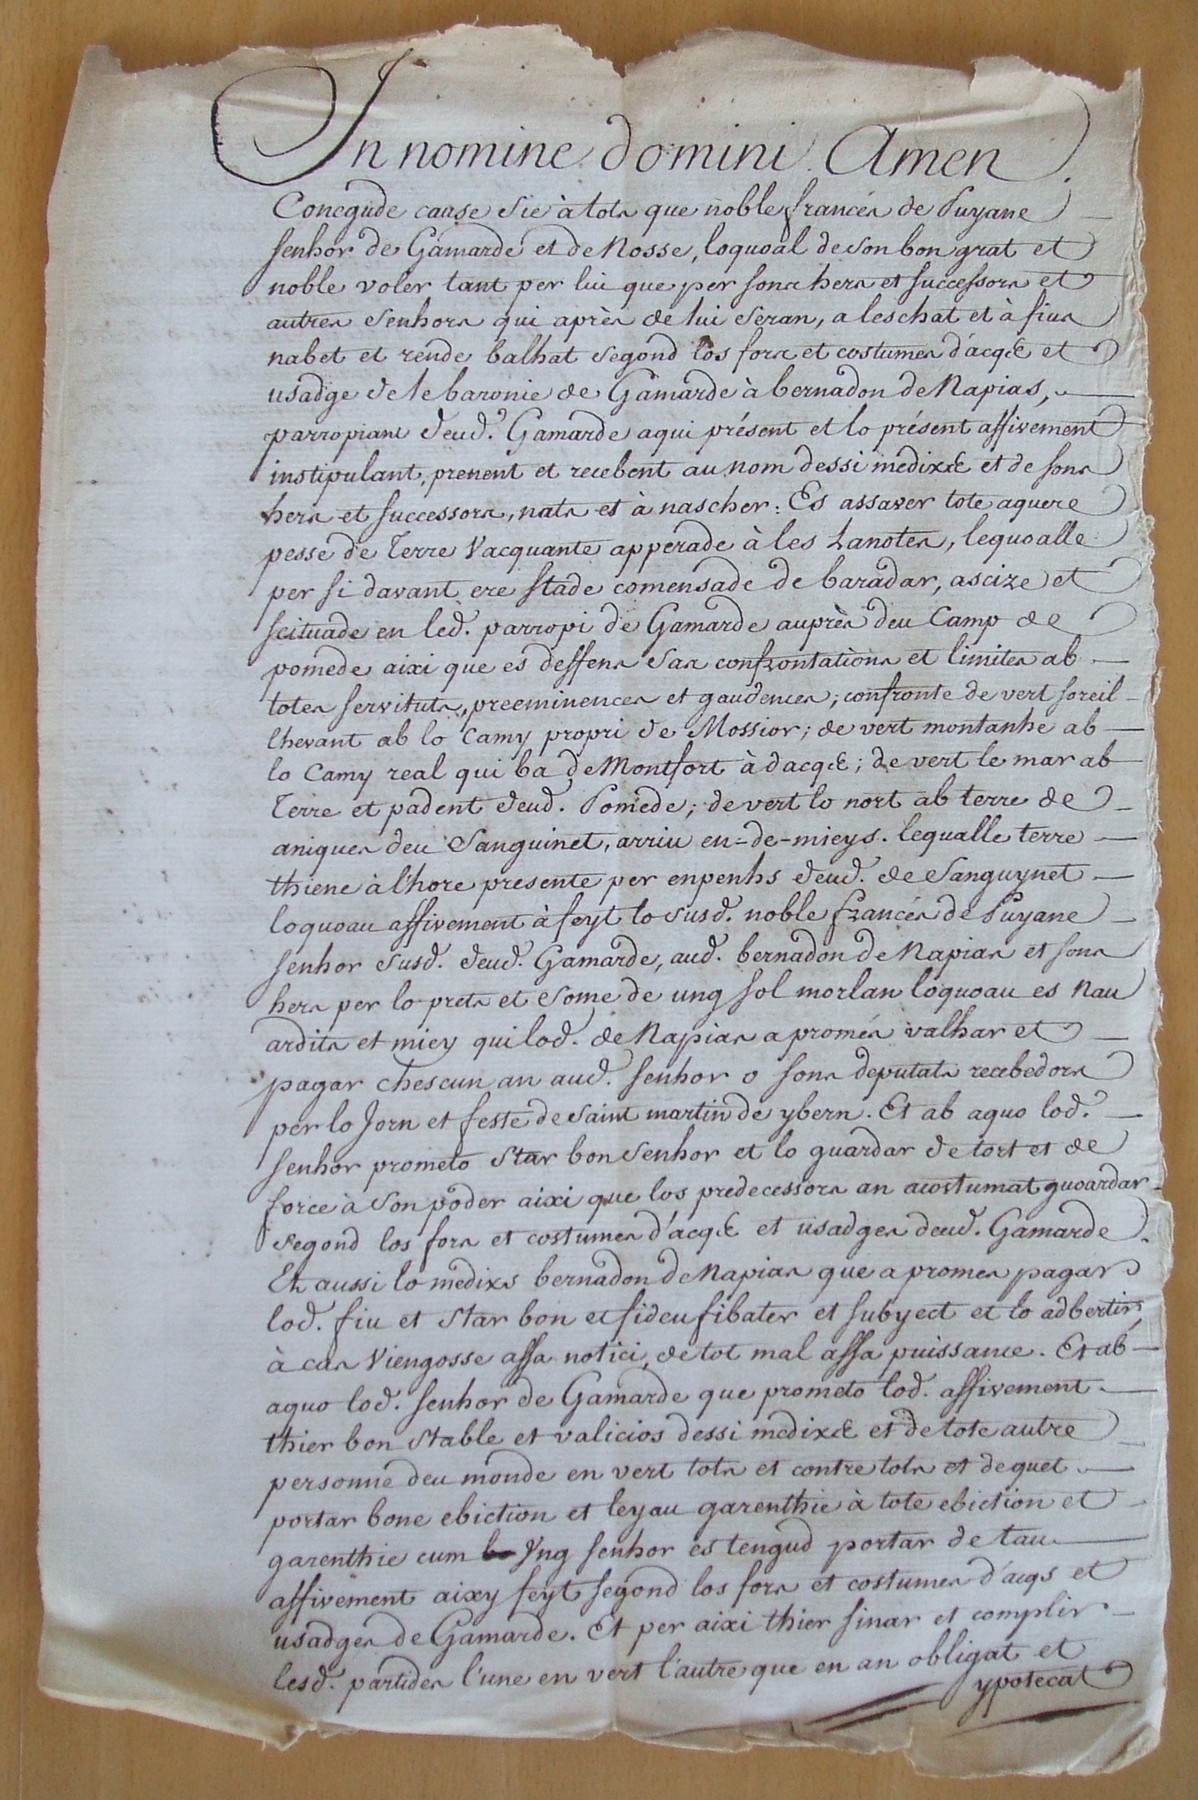 In nomine domini. Amen.
Conegude cause sie à tots que noble francés de Puyane
senhor de Gamarde et de Nosse, loquoal de son bon grat et
noble voler tant per lui que per sons hers et successors et
autres senhors qui après de lui seran, a leschat et à fius
nabet et rende balhat segond los fors et costumes d'acqs et
usadge de le baronie de Gamarde à bernadon de Napias,
parropiant deud. Gamarde aqui présent et lo présent affivement
instipulant, prenent et recebent au nom dessi medixs et de sons
hers et successors, nats et à nascher: Es assaver tote aquere
pesse de Terre Vacquante apperade à les Lanotes, lequoalle
per si davant ere stade comensade de baradar, ascize et
scituade en led. parropi de Gamarde auprès deu Camp de
pomede aixi que es deffens sas confrontations et limites ab
totes servituts, preeminences et gaudences; confronte de vert soreil-
lhevant ab lo Camy propri de Mossior; de vert montanhe ab
lo Camy real qui ba de Montfort à dacqs; de vert le mar ab
Terre et padent deud. Pomede; de vert lo nort ab terre de
aniques deu Sanguinet, arriu en-de-mieys. lequalle terre
thiene à l'hore presente per enpenhs deud. de Sanguynet
loquoau affivement à feyt lo susd. noble francés de Puyane
senhor susd. deud. Gamarde, aud. bernadon de Napias et sons
hers per lo prets et some de ung sol morlan loquoau es nau
ardits et miey qui lod. de Napias a promés valhar et
pagar chescun an aud. senhor o sons deputats recebedors
per lo Jorn et feste de saint martin de ybern. Et ab aquo lod.
senhor prometo star bon senhor et lo guardar de tort et de
force à son poder aixi que los predecessors an acostumat guoardar
segond los fors et costumes d'acqs et usadges deud. Gamarde.
Et aussi lo medixs bernadon de Napias que a promes pagar
lod. fiu et star bon et fideu fibater et subyect et lo adbertir,
à cas viengosse assa notici, de tot mal assa puissance. Et ab
aquo lod. senhor de Gamarde que prometo lod. affivement
thier bon stable et valicios dessi medixs et de tote autre
personne deu monde en vert tots et contre tots et dequet
portar bone ebiction et leyau garenthie à tote ebiction et
garenthie cum Yng senhor es tengud portar de tau
affivement aixy feyt segond los fors et costumes d'acqs et
usadges de Gamarde. Et per aixi thier sinar et complir
lesd. partides l'une en vert l'autre que en an obligat et
ypotecat